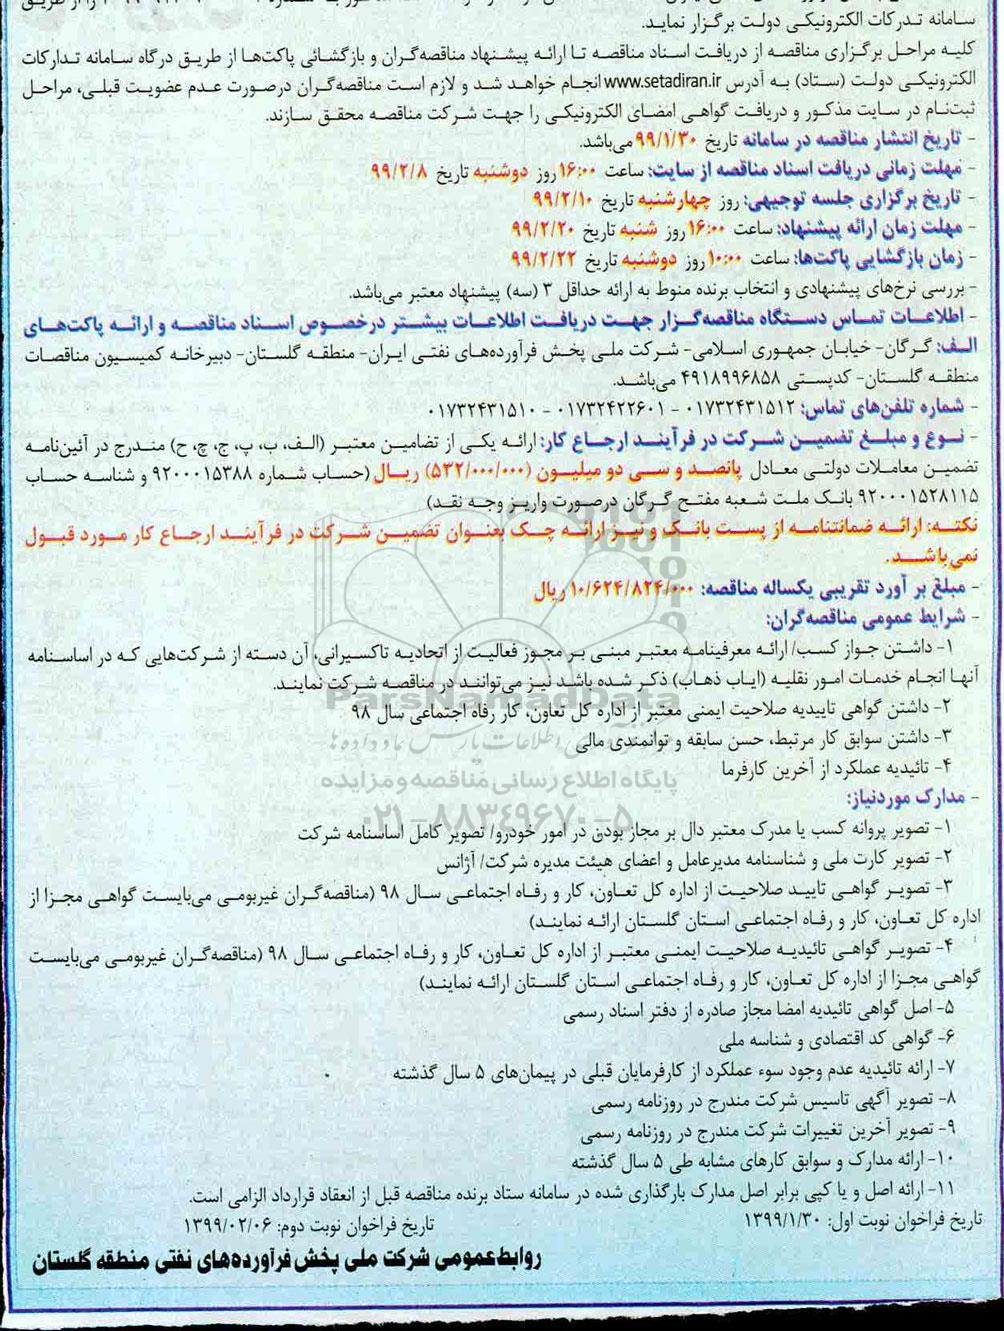 سامانه تدرکات الکترونیکی دولت برگزار نماید.
کلیه مراحل برگزاری مناقصه از دریافت اسناد مناقصه تا ارائه پیشنهاد مناقصه‌گران و بازگشائی پاکت‌ها از طریق درگاه سامانه تدارکات
الکترونیکی دولت (ستاد) به آدرس www.setadiran.ir انجام خواهد شد و لازم است مناقصه‌گران درصورت عدم عضویت قبلی، مراحل
ثبت‌نام در سایت مذکور و دریافت گواهی امضای الکترونیکی را جهت شرکت مناقصه محقق سازند.
- تاریخ انتشار مناقصه در سامانه تاریخ ۹۹/۱/۳۰ می‌باشد.
- مهلت زمانی دریافت اسناد مناقصه از سایت: ساعت ۱۶:۰۰ روز دوشنبه تاریخ ۹۹/۲/۸
- تاریخ برگزاری جلسه توجیهی: روز چهارشنبه تاریخ ۹۹/۲/۱۰
- مهلت زمان ارائه پیشنهاد: ساعت ۱۶:۰۰ روز شنبه تاریخ ۹۹/۲/۲۰
- زمان بازگشایی پاکت‌ها: ساعت ۱۰:۰۰ روز دوشنبه تاریخ ۹۹/۲/۲۲
- بررسی نرخ‌های پیشنهادی و انتخاب برنده منوط به ارائه حداقل ۳ (سه) پیشنهاد معتبر می‌باشد.
- اطلاعات تماس دستگاه مناقصه‌گزار جهت دریافت اطلاعات بیشتر درخصوص اسناد مناقصه و ارائه پاکت‌های
الف: گرگان- خیابان جمهوری اسلامی- شرکت ملی پخش فرآورده‌های نفتی ایران- منطقه گلستان- دبیرخانه کمیسیون مناقصات
منطقه گلستان- کدپستی ۴۹۱۸۹۹۶۸۵۸ می‌باشد.
- شماره تلفن‌های تماس: ۰۱۷۳۲۴۳۱۵۱۲ - ۰۱۷۳۲۴۲۲۶۰۱ - ۰۱۷۳۲۴۳۱۵۱۰
- نوع و مبلغ تضمین شرکت در فرآیند ارجاع کار: ارائه یکی از تضامین معتبر (الف، ب، پ، ج، چ، ح) مندرج در آئین‌نامه
تضمین معاملات دولتی معادل پانصد و سی دو میلیون (۵۳۲/۰۰۰/۰۰۰) ریال (حساب شماره ۹۲۰۰۰۱۵۳۸۸ و شناسه حساب
۹۲۰۰۰۱۵۲۸۱۱۵ بانک ملت شعبه مفتح گرگان درصورت واریز وجه نقد)
نکته: ارائه ضمانتنامه از پست بانک و نیز ارائه چک بعنوان تضمین شرکت در فرآیند ارجاع کار مورد قبول
نمی‌باشد.
- مبلغ بر آورد تقریبی یکساله مناقصه: ۱۰/۶۲۴/۸۲۴/۰۰۰ ریال
- شرایط عمومی مناقصه‌گران:
۱- داشتن جواز کسب/ ارائه معرفینامه معتبر مبنی بر مجوز فعالیت از اتحادیه تاکسیرانی، آن دسته از شرکت‌هایی که در اساسنامه
آنها انجام خدمات امور نقلیه (ایاب ذهاب) ذکر شده باشد نیز می‌توانند در مناقصه شرکت نمایند.
ParsNamadData
۲- داشتن گواهی تاییدیه صلاحیت ایمنی معتبر از اداره کل تعاون، کار رفاه اجتماعی سال ۹۸
۳- داشتن سوابق کار مرتبط، حسن سابقه و توانمندی مالی
۴- تائیدیه عملکرد از آخرین کارفرما
پایگاه اطلاع رسانی مناقصه و مزایده
- مدارک موردنیاز:
۰۲۱-۸۸۳۴۹۶۷۰-۵
۱- تصویر پروانه کسب یا مدرک معتبر دال بر مجاز بودن در امور خودرو/ تصویر کامل اساسنامه شرکت
۲- تصویر کارت ملی و شناسنامه مدیرعامل و اعضای هیئت مدیره شرکت/ آژانس
۳- تصویر گواهی تایید صلاحیت از اداره کل تعاون، کار و رفاه اجتماعی سال ۹۸ (مناقصه‌گران غیربومی می‌بایست گواهی مجزا از
اداره کل تعاون، کار و رفاه اجتماعی استان گلستان ارائه نمایند)
۴- تصویر گواهی تائیدیه صلاحیت ایمنی معتبر از اداره کل تعاون، کار و رفاه اجتماعی سال ۹۸ (مناقصه‌گران غیربومی می‌بایست
گواهی مجزا از اداره کل تعاون، کار و رفاه اجتماعی استان گلستان ارائه نمایند)
۵- اصل گواهی تائیدیه امضا مجاز صادره از دفتر اسناد رسمی
۶- گواهی کد اقتصادی و شناسه ملی
۷- ارائه تائیدیه عدم وجود سوء عملکرد از کارفرمایان قبلی در پیمان‌های ۵ سال گذشته
۸- تصویر آگهی تاسیس شرکت مندرج در روزنامه رسمی
۹- تصویر آخرین تغییرات شرکت مندرج در روزنامه رسمی
۱۰- ارائه مدارک و سوابق کارهای مشابه طی ۵ سال گذشته
۱۱- ارائه اصل و یا کپی برابر اصل مدارک بارگذاری شده در سامانه ستاد برنده مناقصه قبل از انعقاد قرارداد الزامی است.
تاریخ فراخوان نوبت اول: ۱۳۹۹/۱/۳۰ تاریخ فراخوان نوبت دوم: ۱۳۹۹/۰۲/۰۶
روابط‌عمومی شرکت ملی پخش فرآورده‌های نفتی منطقه گلستان